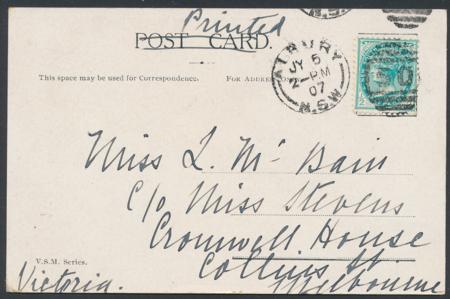 Printed
N.S.W
POST CARD.
ALBURY
JY 5
2-PM
07
N.S.W
This space may be used for Correspondence.
FOR ADDRESS
Miss L. McBain
C/o Miss Stevens
Cromwell House
Collins St.
V.S.M. Series.
Victoria. Melbourne